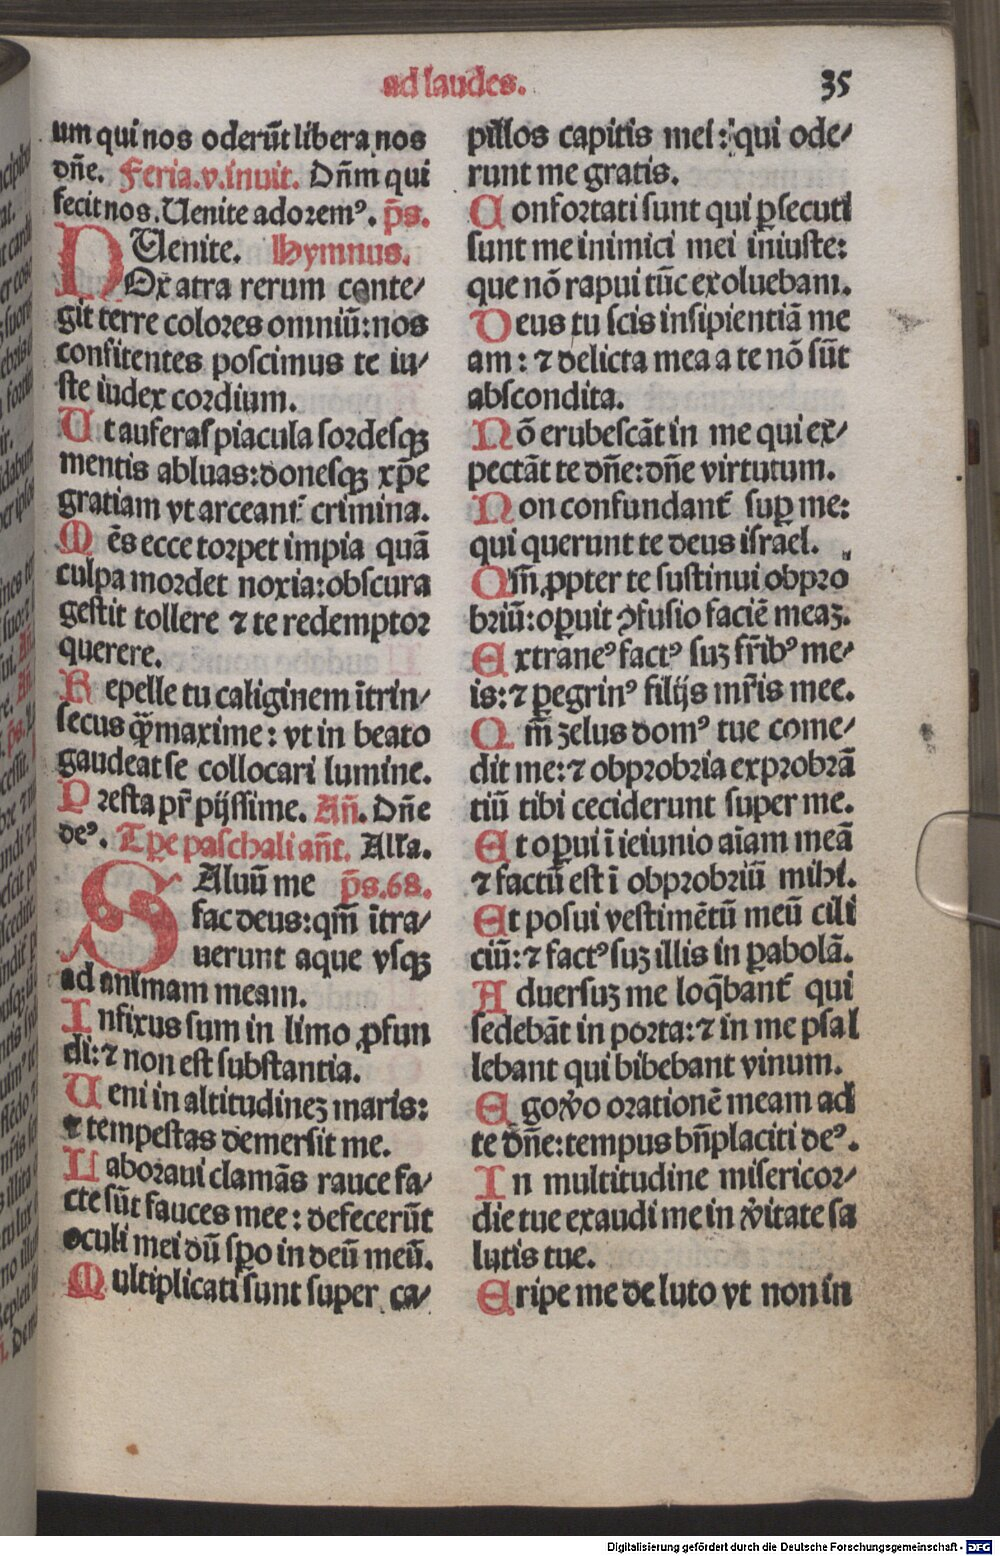 ad laudes.
35
um qui nos oderūt libera nos
dñe. Feria.v.inuit. Dñm qui
fecit nos. Uenite adoremꝰ. p̄s.
Uenite. Hymnus.
NOx atra rerum conte/
git terre colores omniū: nos
confitentes poscimus te iu/
ste iudex cordium.
Ut auferas piacula sordesqꝫ
mentis abluas: donesqꝫ xp̄e
gratiam vt arceant᷑ crimina.
Mēs ecce torpet impia quā
culpa mordet noxia: obscura
gestit tollere ⁊ te redemptor
querere.
Repelle tu caliginem ītrin/
secus qꝫ̄maxime: vt in beato
gaudeat se collocari lumine.
Presta pr̄ pijssime. Añ. Dñe
deꝰ. Tp̄e paschali añt. Alla.
SAluū me p̄s.68.
fac deus: qm̄ ītra/
uerunt aque vsqꝫ
ad animam meam.
Infixus sum in limo ꝓfun
di: ⁊ non est substantia.
Ueni in altitudineꝫ maris:
⁊ tempestas demersit me.
Laboraui clamās rauce fa/
cte sūt fauces mee: defecerūt
oculi mei dū sꝑo in deū meū.
Multiplicati sunt super ca/
pillos capitis mei: qui ode/
runt me gratis.
Confortati sunt qui ꝑsecuti
sunt me inimici mei iniuste:
que nō rapui tūc exoluebam.
Deus tu scis insipientiā me
am: ⁊ delicta mea a te nō sūt
abscondita.
Nō erubescāt in me qui ex/
pectāt te dñe: dñe virtutum.
Non confundant᷑ suꝑ me:
qui querunt te deus israel.
Qm̄ ꝓpter te sustinui obpro
briū: oꝑuit ꝯfusio faciē meaꝫ.
Extraneꝰ factꝰ suꝫ fr̄ibꝰ me/
is: ⁊ ꝑegrinꝰ filijs mr̄is mee.
Qm̄ zelus domꝰ tue come/
dit me: ⁊ obprobria exprobrā
tiū tibi ceciderunt super me.
Et oꝑui ī ieiunio aīam meā
⁊ factū est ī obprobriū mihi.
Et posui vestimētū meū cili
ciū: ⁊ factꝰ suꝫ illis in ꝑabolā.
Aduersuꝫ me loq̄bant᷑ qui
sedebāt in porta: ⁊ in me psal
lebant qui bibebant vinum.
Ego v̄o orationē meam ad
te dñe: tempus bn̄placiti deꝰ.
In multitudine misericor/
die tue exaudi me in v̄itate sa
lutis tue.
Eripe me de luto vt non in
Digitalisierung gefördert durch die Deutsche Forschungsgemeinschaft - DFG